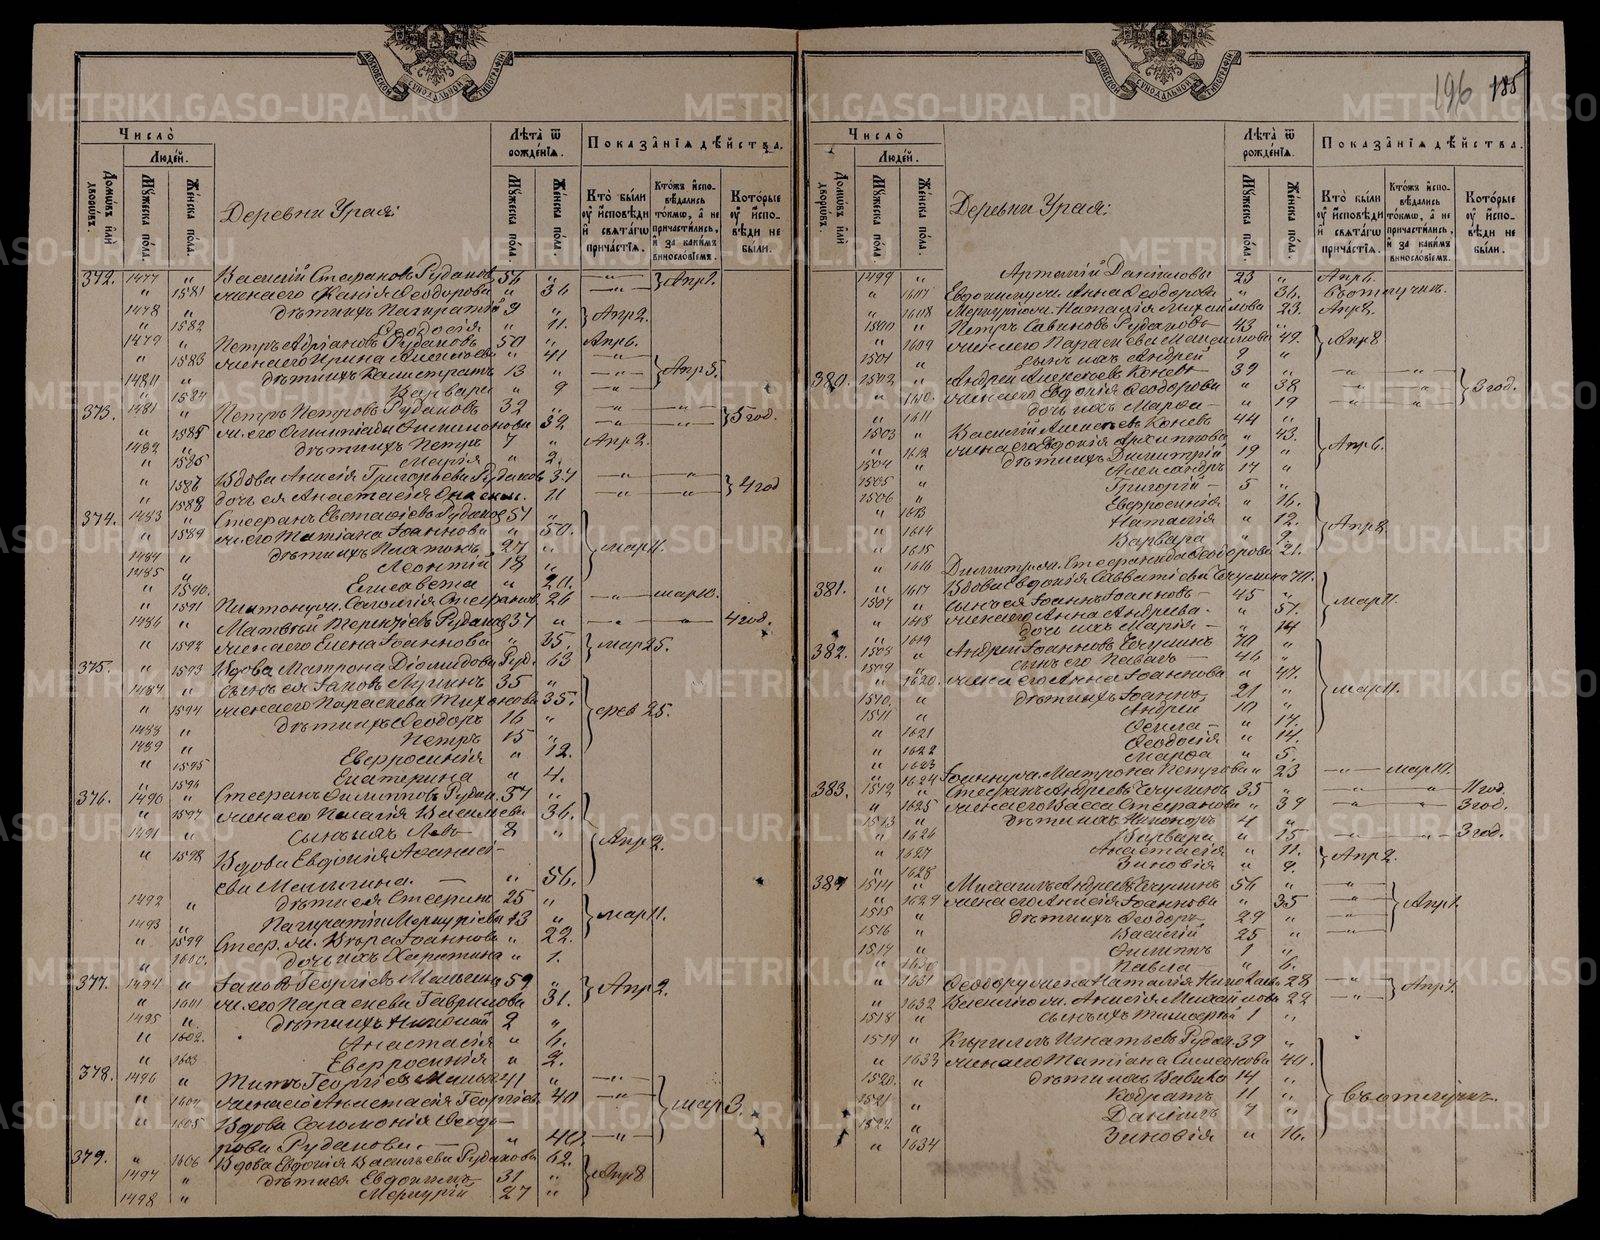 196 185
Число̀
Люде́й.
Домѡ́въ и҆лѝ дворѡ́въ.
Мꙋ́жеска по́ла.
Же́нска по́ла.
Лѣ́та ѿ рожде́нїѧ.
Мꙋ́жеска по́ла.
Же́нска по́ла.
Показа̑нїѧ дѣ́йства.
Кто̀ бы́ли ᲂу҆ и҆́сповѣди и҆ свѧта́гѡ прича́стїѧ.
Кто́жъ и҆сповѣ́дались то́кмѡ, а҆ не причасти́лись, и҆ за каки́мъ виносло́вїемъ.
Кото́рые ᲂу҆ и҆́сповѣди не бы́ли.
Деревни Урая:
372. 1477 " Василій Стефановъ Рудаковъ 56 " Апр 1.
" 1581 жена его Ксанія Ѳеодорова " 36
1478 " дѣти ихъ Панкратій 9 " Апр 2.
" 1582 Ѳеодосія " 11.
1479 " Петръ Адріановъ Рудаковъ 50 " Апр 6.
" 1583 жена его Ирина Алексѣева " 41 Апр 5.
1480 " дѣти ихъ Каллистратъ 13 "
" 1584 Варвара " 9
373. 1481 " Петръ Петровъ Рудаковъ 32 " 5 год.
" 1585 ж. его Олимпіада Филимонова 32
1482 " дѣти ихъ Петръ 7 " Апр 2.
" 1586 Марія " 2.
" 1587 Вдова Анисія Григорьева Рудаков. 37 4 год
" 1588 дочь ея Анастасія " 11
374. 1483 " Стефанъ Евстафіевъ Рудаков 51 " мар 11.
" 1589 ж. его Татіана Іоаннова " 50.
1484 " дѣти ихъ Платонъ 27 "
1485 " Леонтій 18 "
" 1590. Елисавета " 20.
" 1591 Платону ж. Саломія Стефанов. 26 мар 10.
1486 " Матвѣй Терентіевъ Рудаков 37 " 4 год.
" 1592 жена его Елена Іоаннова " 35. мар 25.
375. " 1593 Вдова Матрона Діомидова Руд. 63
1487 " сынъ ея Іаковъ Лукинъ 35 " фев 25.
" 1594 жена его Параскева Тихонова 35.
1488 " дѣти ихъ Ѳеодоръ 16 "
1489 " Петръ 15 "
" 1595 Евфросинія " 12.
" 1596 Екатерина " 4.
376. 1490 " Стефанъ Филипповъ Рудак. 37 " Апр 2.
" 1597 жена его Пелагія Васильева 36.
1491 " сынъ ихъ Левъ 8 "
" 1598 Вдова Евдокія Аѳанасі-
ева Малыгина. — " 56.
1492 " дѣти ея Стефанъ 25 " мар 11.
1493 " Панкратій Меркуріевъ 13 "
" 1599 Стеф. ж. Вѣра Іоаннова " 22.
" 1600. дочь ихъ Харитина " 1.
377. 1494 " Іаковъ Георгіевъ Малыгин 59 " Апр 2.
" 1601 ж. его Параскева Гаврилова 31.
1495 " дѣти ихъ Николай 2 "
" 1602. Анастасія " 6.
" 1603 Евфросинія " 2.
378. 1496 " Титъ Георгіевъ Малыг. 41 " мар 3.
" 1604 жена его Анастасія Георгіев. 40
" 1605 Вдова Саломонія Ѳеодо-
рова Рудакова. — " 40.
379. " 1606 Вдова Евдокія Васильева Рудакова 62. Апр 8
1497 " дѣти ея Евдокимъ 31 "
1498 " Меркурій 27 "
Число̀
Люде́й.
Домѡ́въ и҆лѝ дворѡ́въ.
Мꙋ́жеска по́ла.
Же́нска по́ла.
Лѣ́та ѿ рожде́нїѧ.
Мꙋ́жеска по́ла.
Же́нска по́ла.
Показа̑нїѧ дѣ́йства.
Кто̀ бы́ли ᲂу҆ и҆́сповѣди и҆ свѧта́гѡ прича́стїѧ.
Кто́жъ и҆сповѣ́дались то́кмѡ, а҆ не причасти́лись, и҆ за каки́мъ виносло́вїемъ.
Кото́рые ᲂу҆ и҆́сповѣди не бы́ли.
Деревни Урая:
1499 " Артемій Даниловъ 23 " Апр 6.
" 1607 Евдокиму ж. Анна Ѳеодорова " 36. въ отлучк.
" 1608 Меркурію ж. Наталія Михайлова 23. Апр 2.
1500 " Петръ Савиновъ Рудаковъ 43 " Апр 8
" 1609 жена его Параскева Максимова 49.
1501 " сынъ ихъ Андрей 9 "
380. 1502 " Андрей Алексѣевъ Коневъ 39 " 3 год.
" 1610. жена его Евдокія Ѳеодорова " 38
" 1611 дочь ихъ Марѳа " 19
1503 " Василій Алексѣевъ Коневъ 44 " Апр 6.
" 1612 жена его Евдокія Архиппова " 43.
1504 " дѣти ихъ Димитрій 19 "
1505 " Александръ 17 "
1506 " Григорій — 5 "
" 1613 Евфросинія " 16. Апр 8
" 1614 Наталія " 12.
" 1615 Варвара " 9.
" 1616 Димитр. ж. Стефанида Ѳеодорова 21.
381. " 1617 Вдова Евдокія Савватіева Чечулина 70. мар 11.
1507 " сынъ ея Іоаннъ Іоанновъ 45 "
" 1618 жена его Анна Андреева. " 51.
" 1619 дочь ихъ Марія — " 14
382. 1508 " Андрей Іоанновъ Чечулинъ 70 " мар 11.
1509 " сынъ его Павелъ 46 "
" 1620. жена его Анна Іоаннова " 47.
1510. " дѣти ихъ Іоаннъ 21 "
1511 " Андрей 10 "
" 1621 Ѳекла — " 17.
" 1622 Ѳеодосія " 14.
" 1623 Марѳа " 5.
" 1624 Іоанну ж. Матрона Петрова " 23 мар 11.
383. 1512 " Стефанъ Андреевъ Чечулинъ 35 " 11 год.
" 1625 жена его Васса Стефанова " 39 3 год.
1513 " дѣти ихъ Никоноръ 4 "
" 1626 Варвара " 15 3 год.
" 1627 Анастасія " 11. Апр 2.
" 1628 Зиновія " 9.
384 1514 " Михаилъ Андреевъ Чечулинъ 56 " Апр 1.
" 1629 жена его Анисія Іоаннова " 35
1515 " дѣти ихъ Ѳеодоръ 29 "
1516 " Василій 25 "
1517 " Филиппъ 1 "
" 1630 Павла " 6.
" 1631 Ѳеодору жена Наталія Николаев. 28 Апр 1.
" 1632 Василію ж. Анисія Михайлова 28
1518 " сынъ ихъ Тимоѳей 1 "
1519 " Кириллъ Игнатьевъ Рудак. 39 " въ отлучк.
" 1633 жена его Татіана Симеонова 40.
1520. " дѣти ихъ Вавила 14 "
1521 " Кодратъ 11 "
1522 " Даніилъ 7 "
" 1634 Зиновія " 16.